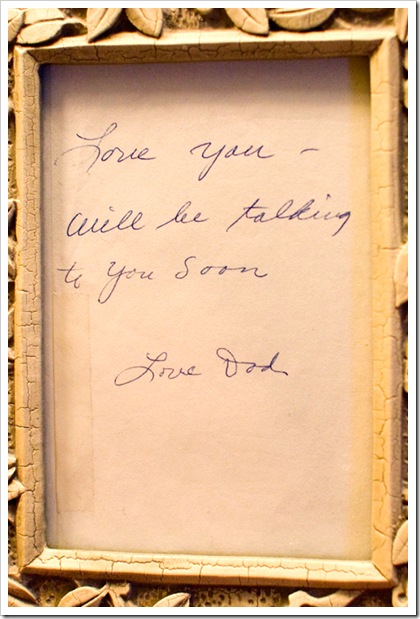 Love you –
will be talking
to you soon
Love Dad